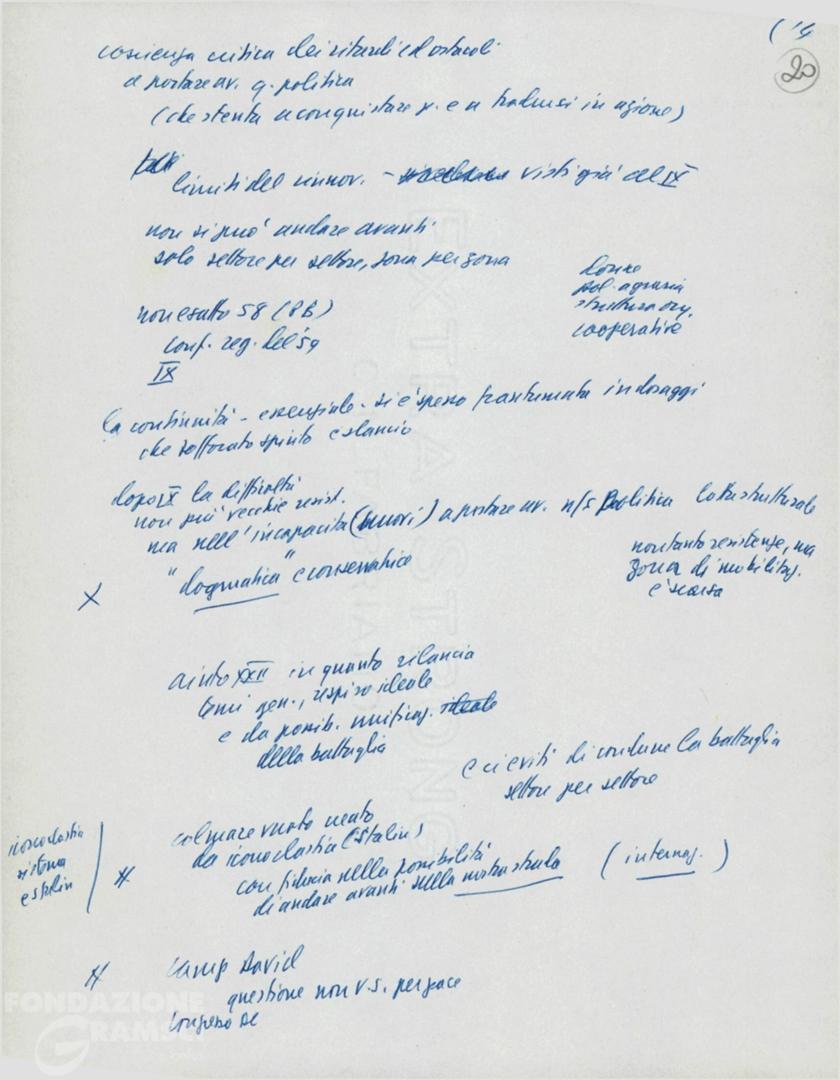 (14
20
coscienza critica dei ritardi ed ostacoli
a portare av. q. politica
(che stenta a conquistare p. e a tradursi in azione)
limiti del rinnov. - visti già al IX
non si può andare avanti
solo settore per settore, zona per zona
donne
pol. agraria
struttura org.
cooperative
non esatto 58 (PB)
conf. reg. del 59
IX
la continuità - essenziale - si è spesso frantumata in dosaggi
che soffocato spirito e slancio
dopo IX la difficoltà
non più vecchie resist.
ma nell'incapacità (nuovi) a portare av. n/s politica lotta strutturale
"dogmatica" e conservatrice
non tanto resistenze, ma
zona di mobilitaz.
è scarsa
X
aiuto XXII in quanto rilancia
temi gen., respiro ideale
e da possib. unificaz. ideale
della battaglia
e ci eviti di condurre la battaglia
settore per settore
iconoclastia
sistema
e stalin
colmare vuoto creato
da iconoclastia (Stalin)
con fiducia nella possibilità
di andare avanti sulla nostra strada
(internaz.)
Camp David
questione non v.s. per pace
Congresso DC
EXTRA STRONG
FONDAZIONE
GRAMSCI